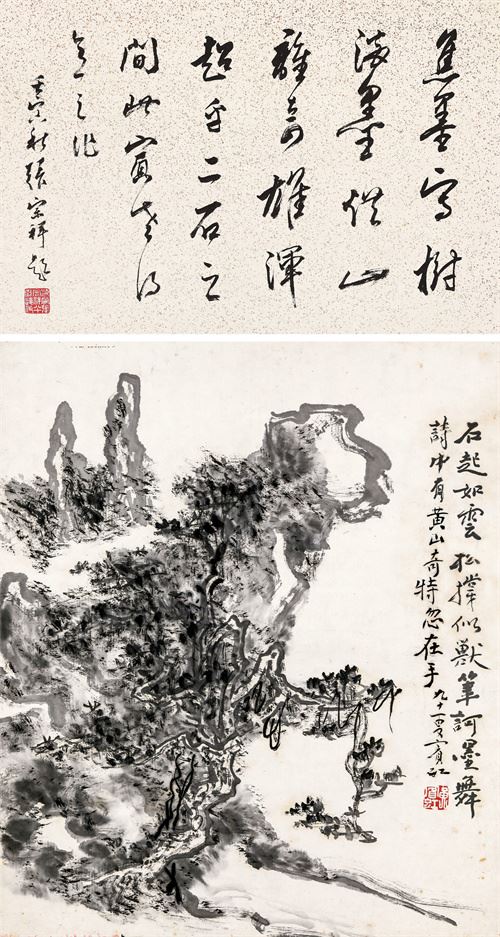 焦墨寫樹
淡墨山
離奇雄渾
超乎二石之
間此賓老得
意之作
壬寅秋張宗祥題
石起如雲松似獸筆訶墨舞
詩中有黃山奇特忽在手 九十一叟賓虹
黃賓虹